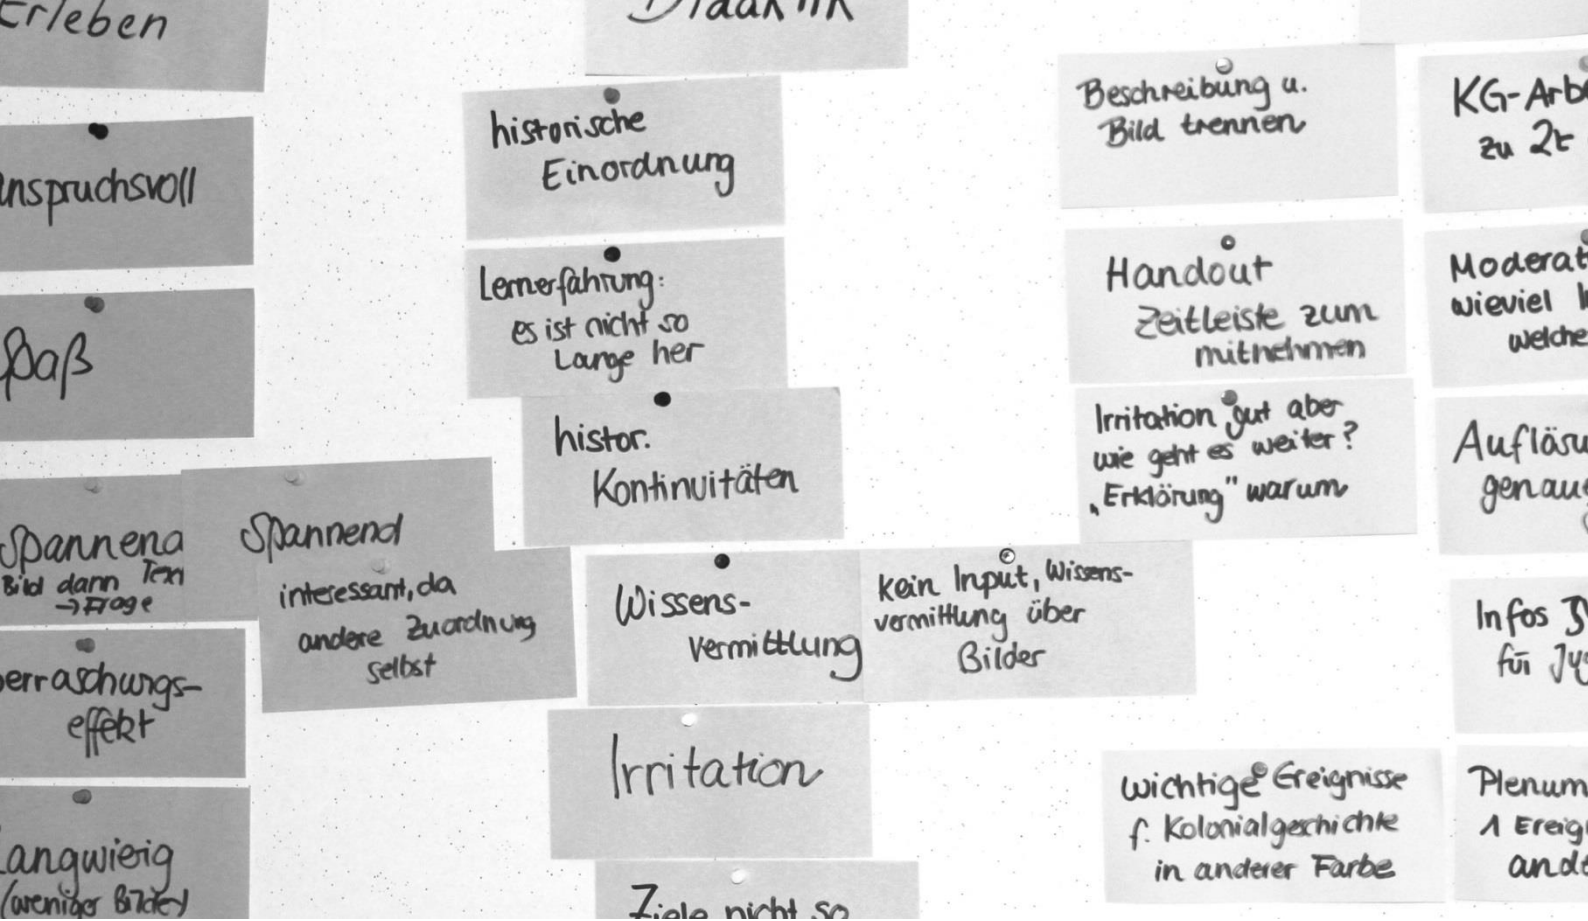 Erleben
Anspruchsvoll
Spaß
Spannend
Bild dann Text
→ Frage
Spannend
interessant, da
andere Zuordnung
selbst
Überraschungs-
effekt
Langwierig
(weniger Bilder)
Didaktik
historische
Einordnung
Lernerfahrung:
es ist nicht so
Lange her
histor.
Kontinuitäten
Wissens-
vermittlung
kein Input, Wissens-
vermittlung über
Bilder
Irritation
Ziele nicht so
Beschreibung u.
Bild trennen
Handout
Zeitleiste zum
mitnehmen
Irritation gut aber
wie geht es weiter?
„Erklärung" warum
wichtige Ereignisse
f. Kolonialgeschichte
in anderer Farbe
KG-Arb
zu 2t
Moderat
wieviel
welche
Auflösu
genau
Infos
für
Plenum
1 Ereig
and